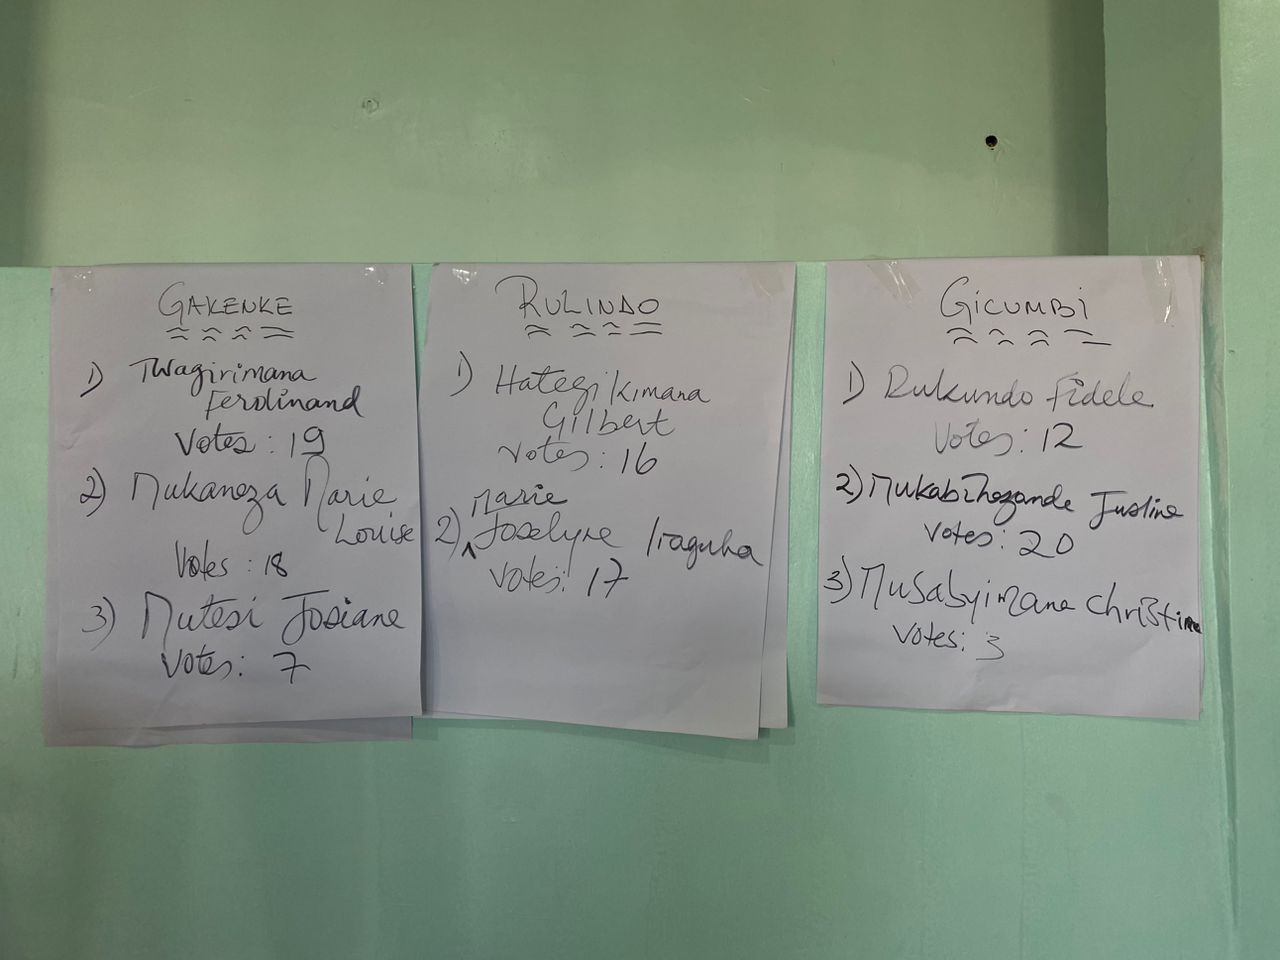 GAKENKE
1) Twagirimana
Ferdinand
Votes: 19
2) Mukaneza Marie
Louise
Votes: 18
3) Mutesi Josiane
Votes: 7
RULINDO
1) Hategikimana
Gilbert
Votes: 16
Marie
2) Joselyne Iraguha
Votes: 17
GICUMBI
1) Rukundo Fidele
Votes: 12
2) Mukabihezande Justine
Votes: 20
3) Musabyimana Christine
Votes: 3